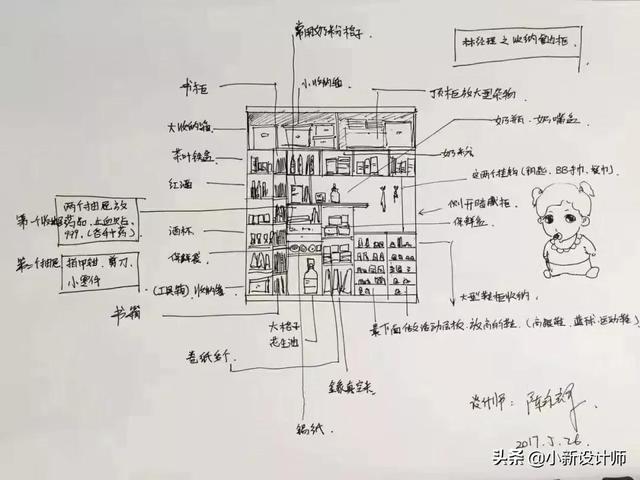 常用奶粉格子
林经理之收纳餐边柜
书柜
小收纳箱
顶柜放大型杂物
大收纳箱
奶瓶、奶嘴盒
茶叶铁盒
奶粉
红酒
两个抽屉放
第一个抽屉药品、止血贴、
999、(各种药)
侧开暗藏柜
酒杯
保鲜盒
保鲜袋
第二个抽屉
指甲钳、剪刀、
小零件
(工具箱)收纳箱
大型鞋柜收纳
书籍
大格子
花生油
最下面做活动层板、放高的鞋、(高跟鞋、篮球运动鞋)
卷纸多个
锡纸
设计师:
2017.5.26
头条@小新设计师